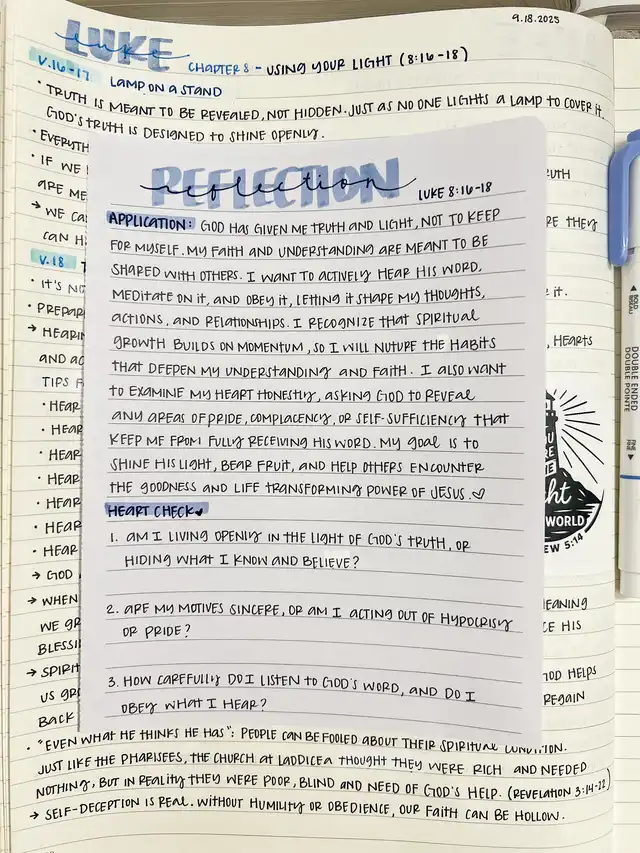 9.18.2025
LUKE
luke
CHAPTER 8 - USING YOUR LIGHT (8:16-18)
V.16-17
LAMP ON A STAND
• TRUTH IS MEANT TO BE REVEALED, NOT HIDDEN. JUST AS NO ONE LIGHTS A LAMP TO COVER IT,
GOD'S TRUTH IS DESIGNED TO SHINE OPENLY.
•
• IF WE
ARE
→ WE
CAN
V.18
• IT'S
•
→
AND
TIPS
• HEAR
• HEAR
• HEAR
• HEAR
• HEAR
• HEAR
• HEAR
→ GOD
→ WHEN
WE
→
US
BACK
REFLECTION
reflection
LUKE 8:16-18
APPLICATION: GOD HAS GIVEN ME TRUTH AND LIGHT, NOT TO KEEP
FOR MYSELF. MY FAITH AND UNDERSTANDING ARE MEANT TO BE
SHARED WITH OTHERS. I WANT TO ACTIVELY HEAR HIS WORD,
MEDITATE ON IT, AND OBEY IT, LETTING IT SHAPE MY THOUGHTS,
ACTIONS, AND RELATIONSHIPS. I RECOGNIZE THAT SPIRITUAL
GROWTH BUILDS ON MOMENTUM, SO I WILL NUTURE THE HABITS
THAT DEEPEN MY UNDERSTANDING AND FAITH. I ALSO WANT
TO EXAMINE MY HEART HONESTLY, ASKING GOD TO REVEAL
ANY AREAS OF PRIDE, COMPLACENCY, OR SELF-SUFFICIENCY THAT
KEEP ME FROM FULLY RECEIVING HIS WORD. MY GOAL IS TO
SHINE HIS LIGHT, BEAR FRUIT, AND HELP OTHERS ENCOUNTER
THE GOODNESS AND LIFE TRANSFORMING POWER OF JESUS. ♡
HEART CHECK ♥
1. AM I LIVING OPENLY IN THE LIGHT OF GOD'S TRUTH, OR
HIDING WHAT I KNOW AND BELIEVE?
2. ARE MY MOTIVES SINCERE, OR AM I ACTING OUT OF HYPOCRISY
OR PRIDE?
3. HOW CAREFULLY DO I LISTEN TO GOD'S WORD, AND DO I
OBEY WHAT I HEAR?
THEY
IT.
, HEARTS
WORLD
5:14
HIS
GOD HELPS
REGAIN
BOLD
DOUBLE ENDED
DOUBLE POINTE
• "EVEN WHAT HE THINKS HE HAS": PEOPLE CAN BE FOOLED ABOUT THEIR SPIRITUAL CONDITION.
JUST LIKE THE PHARISEES, THE CHURCH AT LAODICEA THOUGHT THEY WERE RICH AND NEEDED
NOTHING, BUT IN REALITY THEY WERE POOR, BLIND AND NEED OF GOD'S HELP. (REVELATION 3:14-22)
→ SELF-DECEPTION IS REAL. WITHOUT HUMILITY OR OBEDIENCE, OUR FAITH CAN BE HOLLOW.